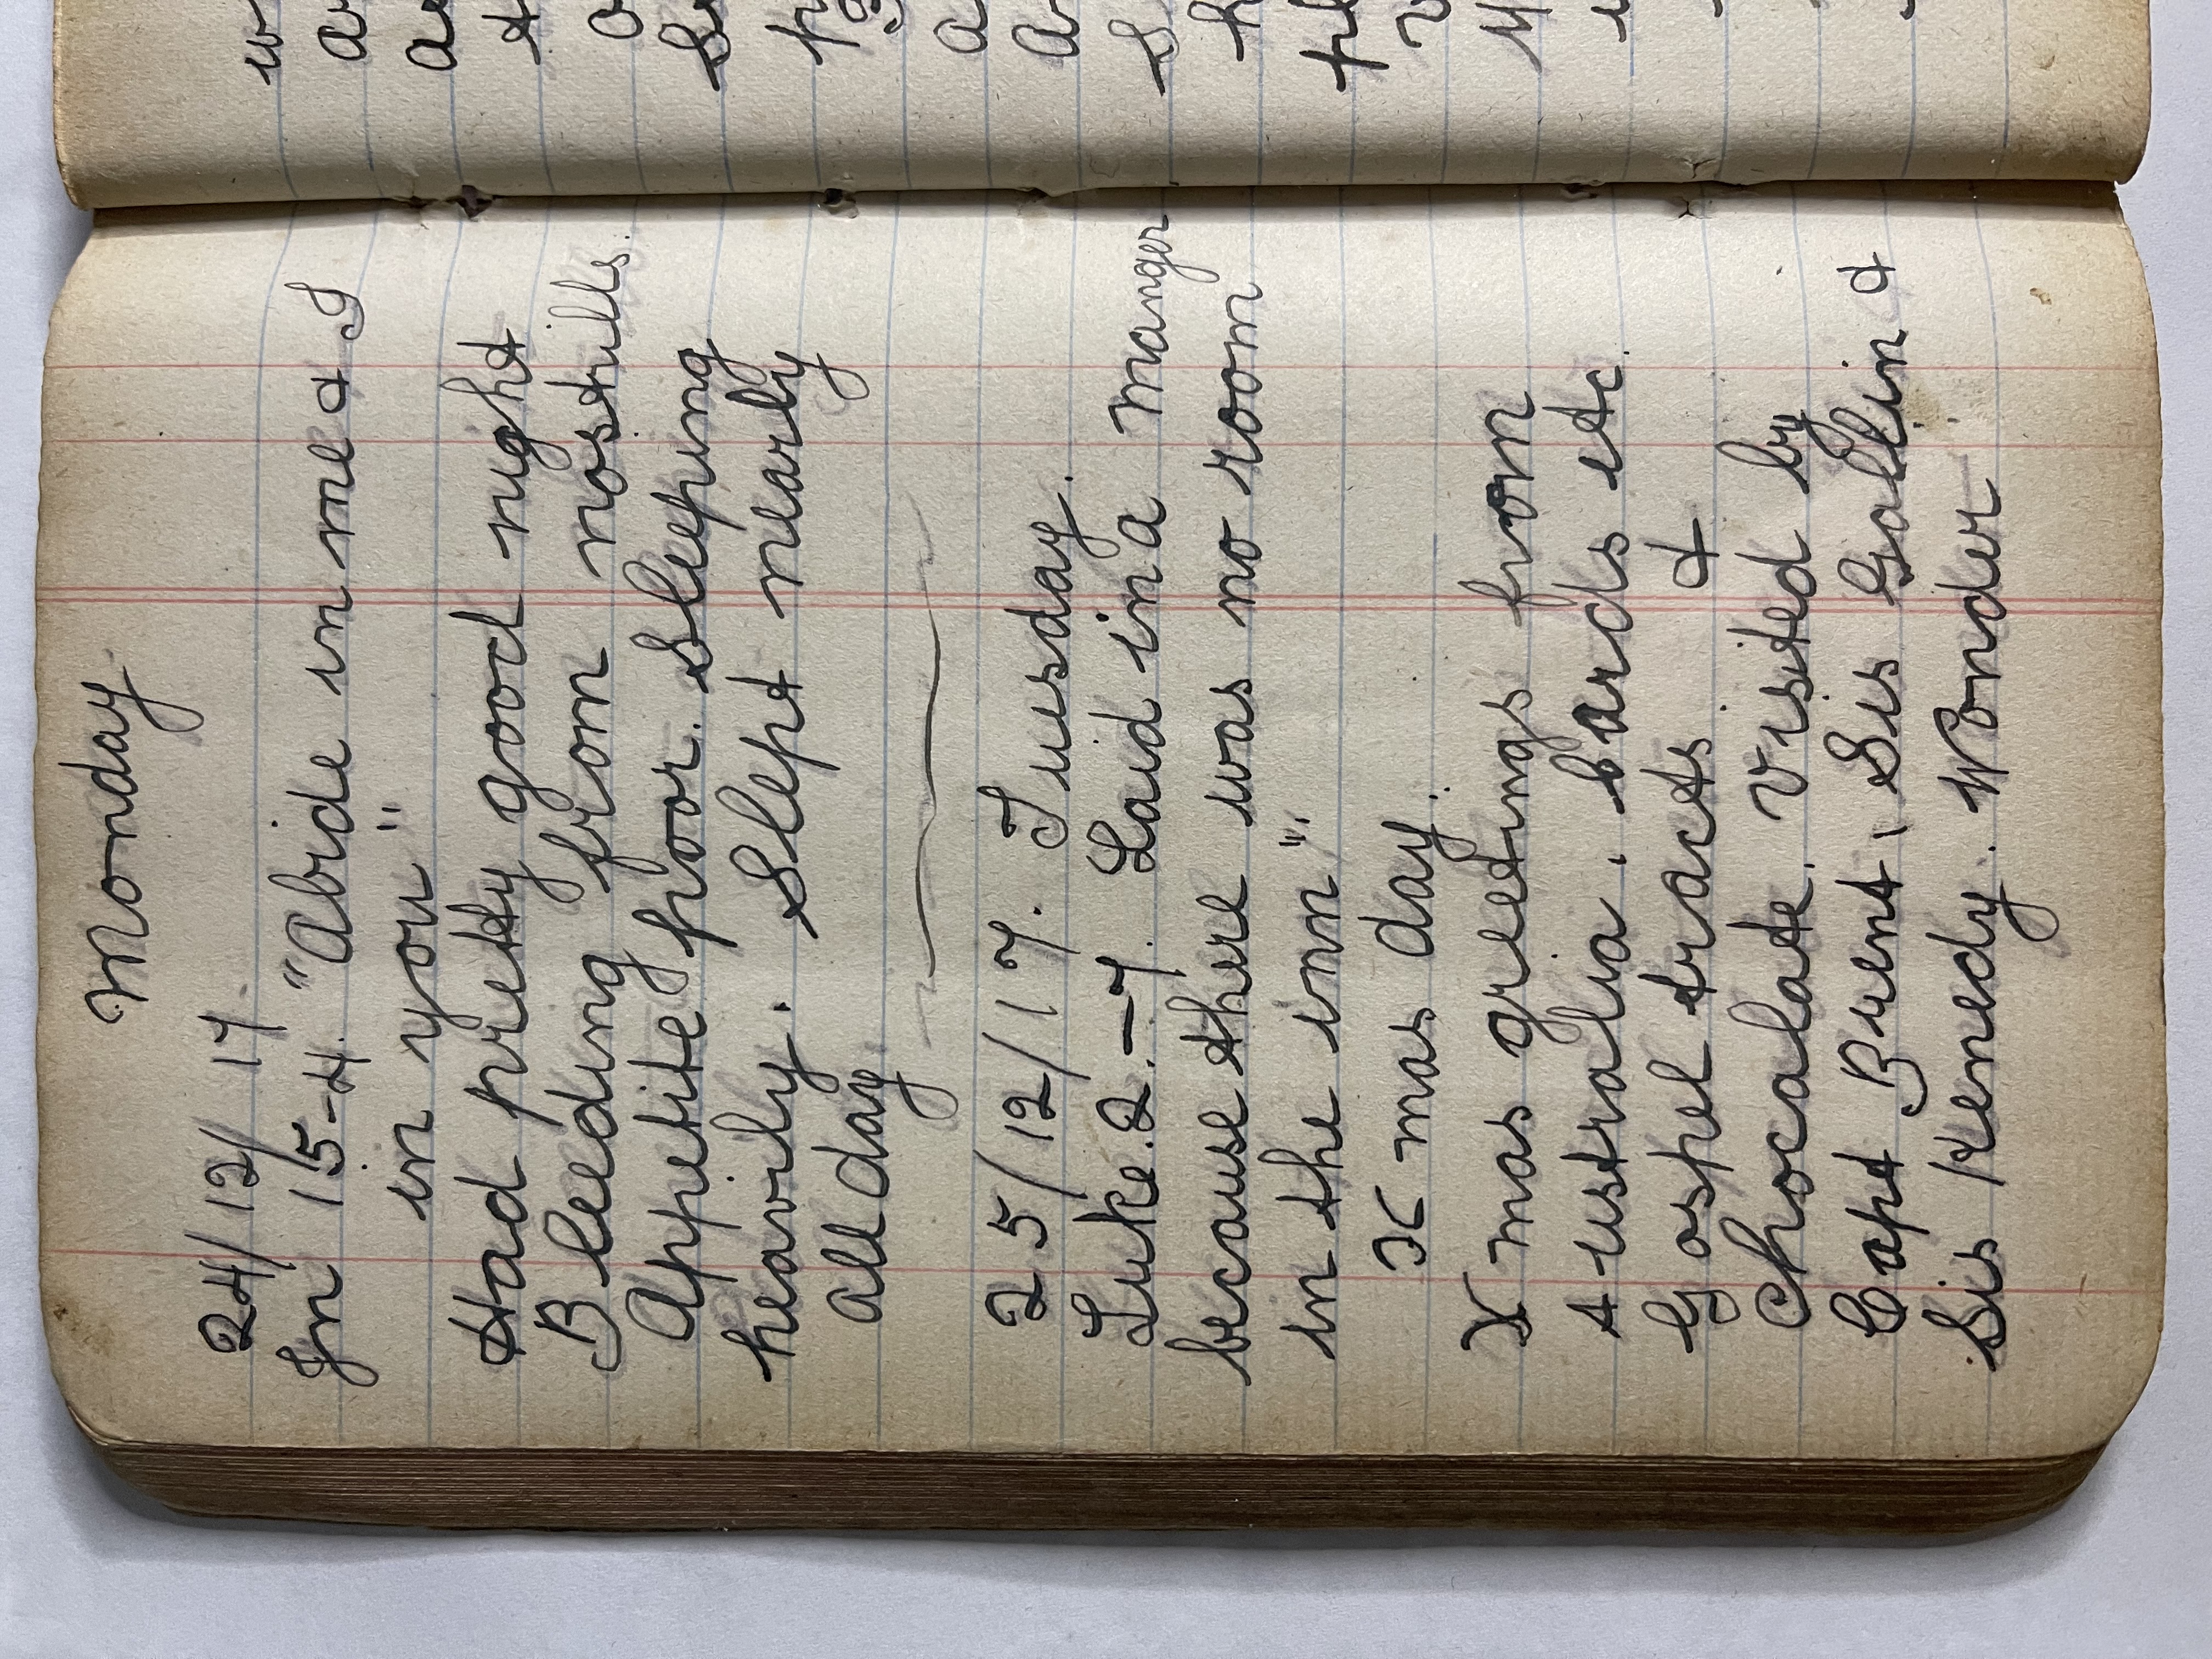 Monday
24/12/17.
Jn 15-4. "Abide in me & I
in you"
Had pretty good night
Bleeding from nostrills.
Appetite poor. Sleeping
heavily. Slept nearly
all day.
25/12/17. Tuesday.
Luke. 2.-7. Laid in a manger
because there was no room
in the inn".
Xmas day.
Xmas greetings from
Australia. Cards etc
Gospel tracts &
Chocalate. Visited by
Capt Brent, Sis Gallin &
Sis Kenedy. Wonder